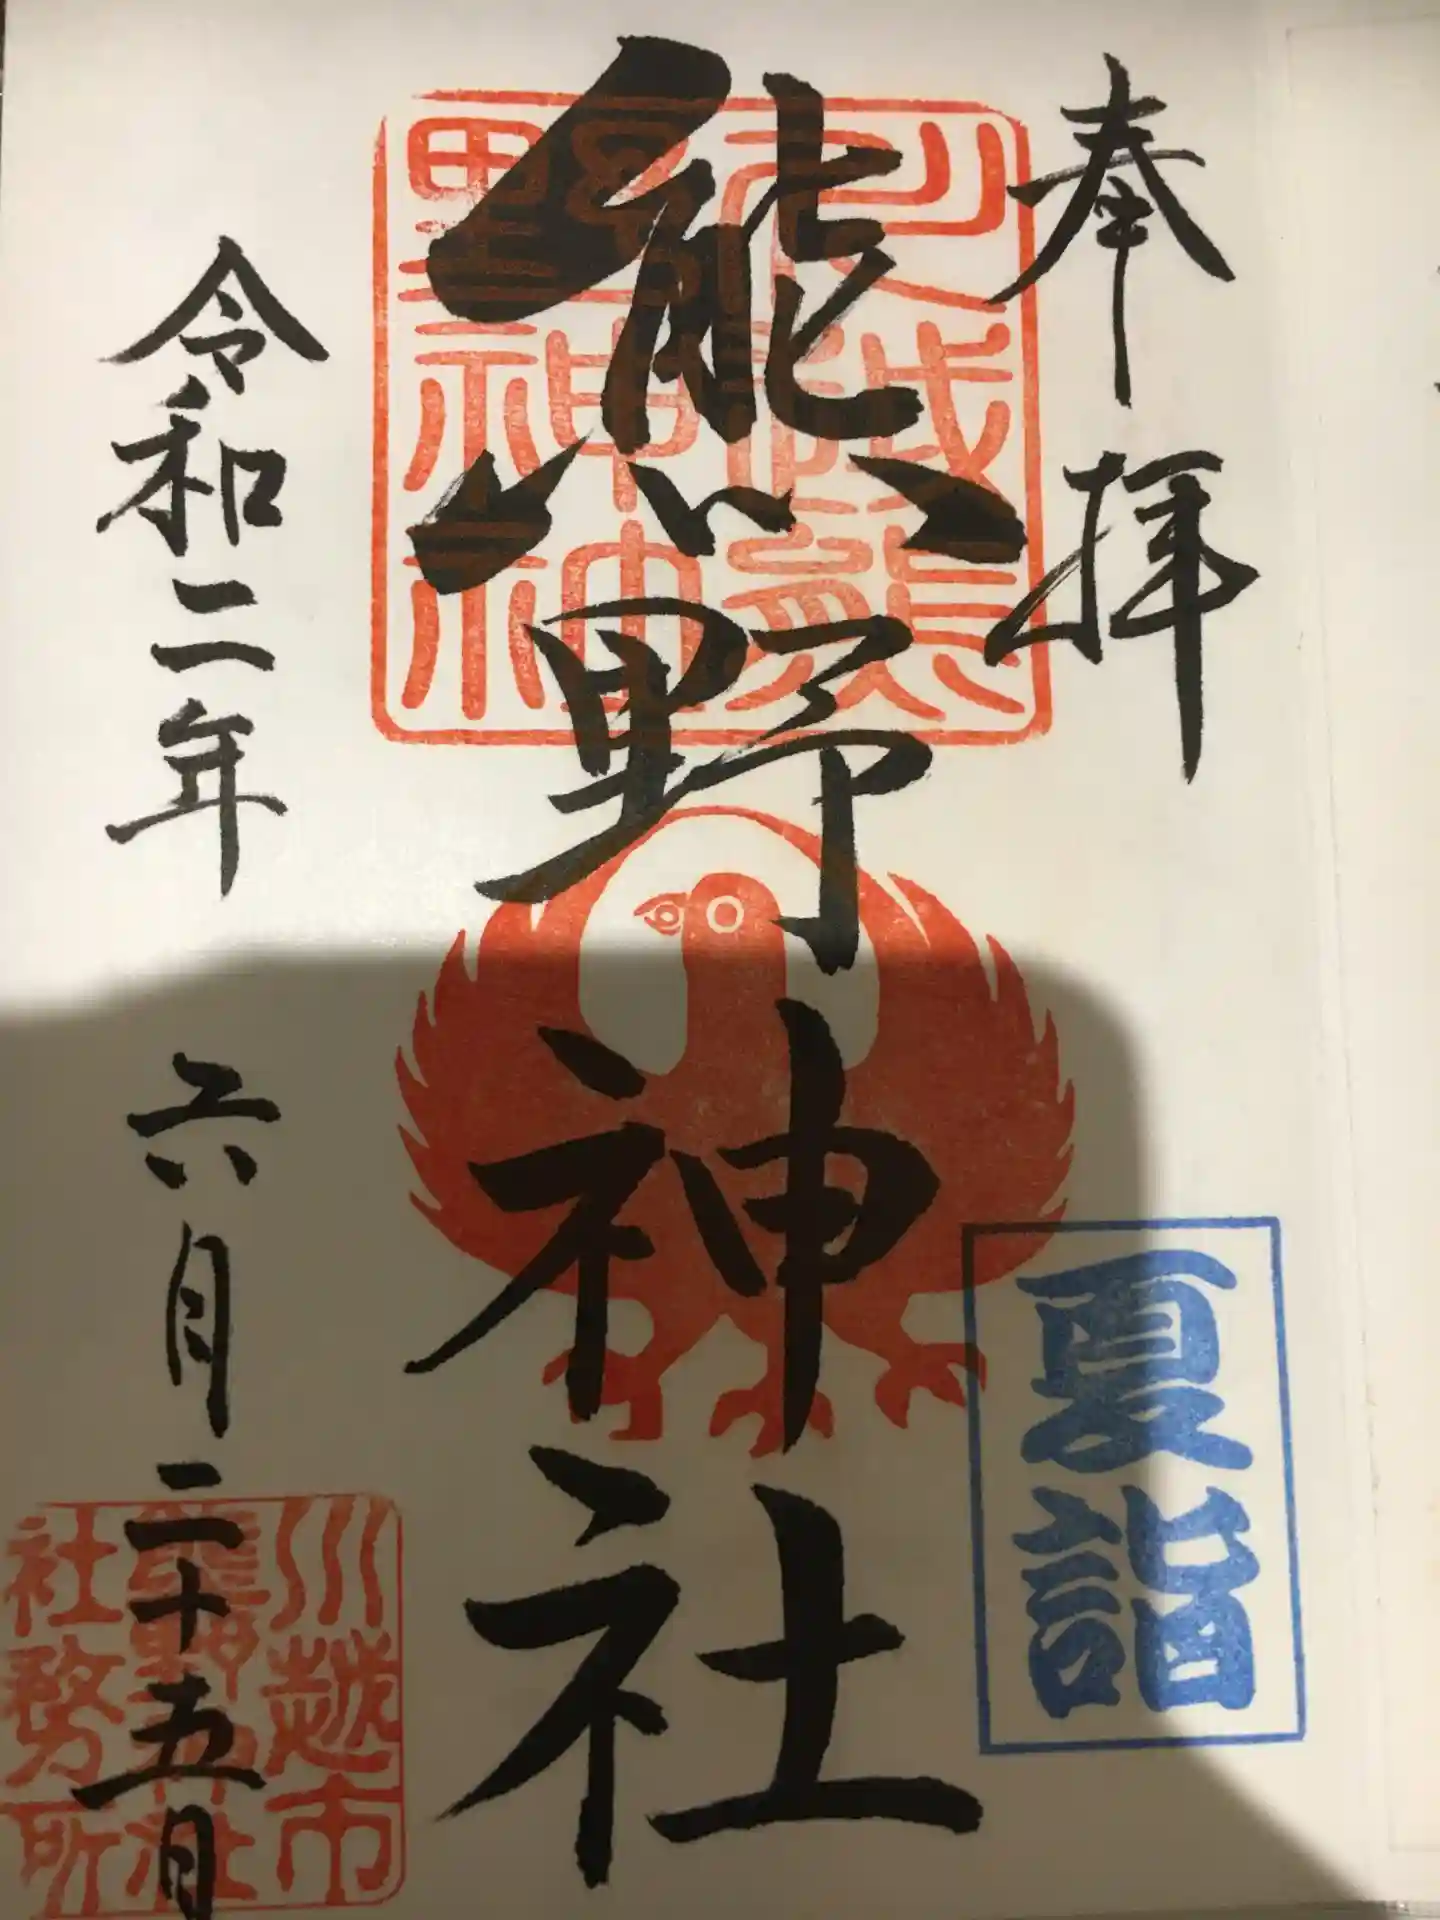 奉拝
夏詣
熊野神社
川越熊野神社
令和二年 六月二十五日
川越市
熊野神社
社務所